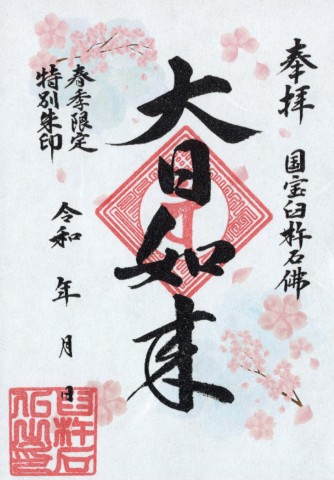 奉拝
国宝臼杵石佛
大日如来
春季限定
特別朱印
令和 年 月 日